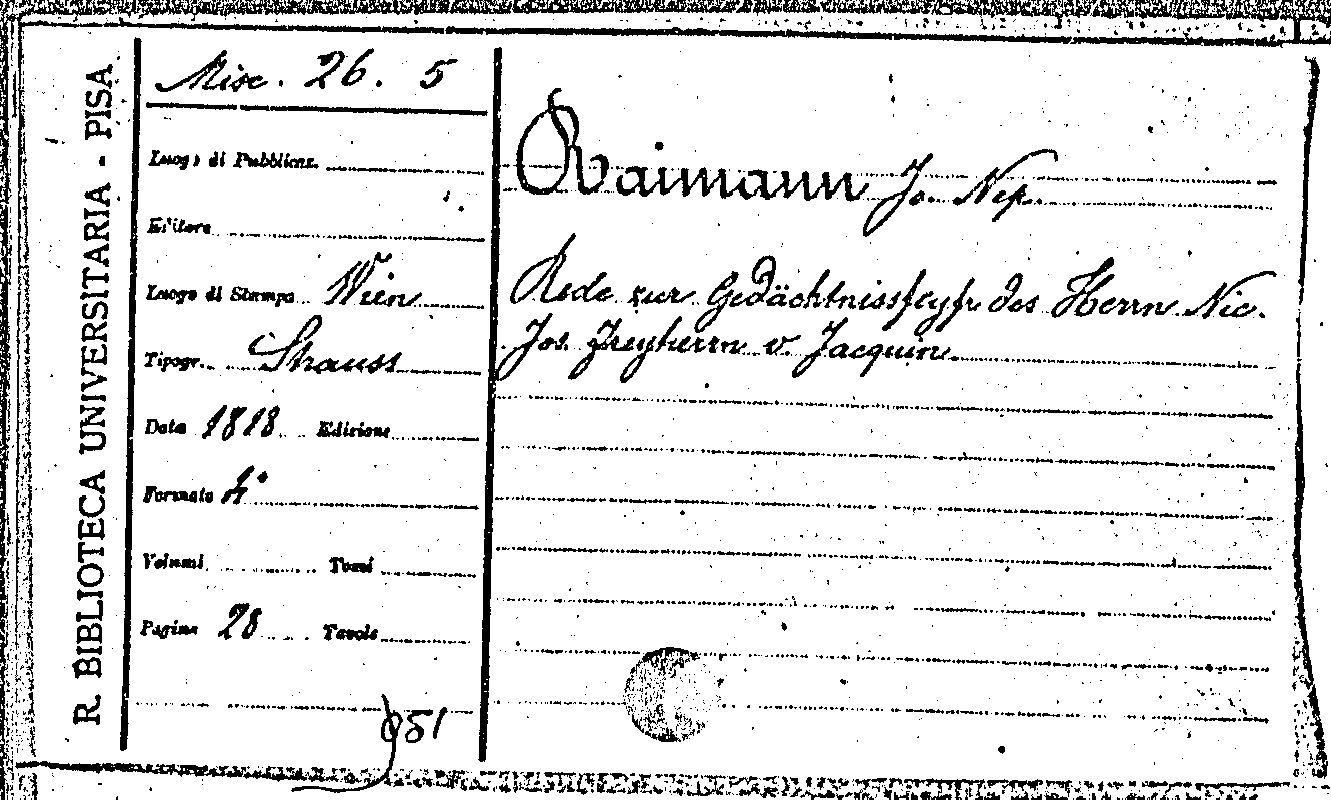 R. BIBLIOTECA UNIVERSITARIA - PISA
Misc. 26. 5
Luogo di Pubblicaz.
Editore
Luogo di Stampa Wien
Tipogr. Strauss
Data 1818 Edizione
Formato 4°
Volumi Tomi
Pagine 28 Tavole
951
Raimann Jo. Nep.
Rede zur Gedächtnissfeyr des Herrn Nic.
Jos. Freyherrn v. Jacquin.